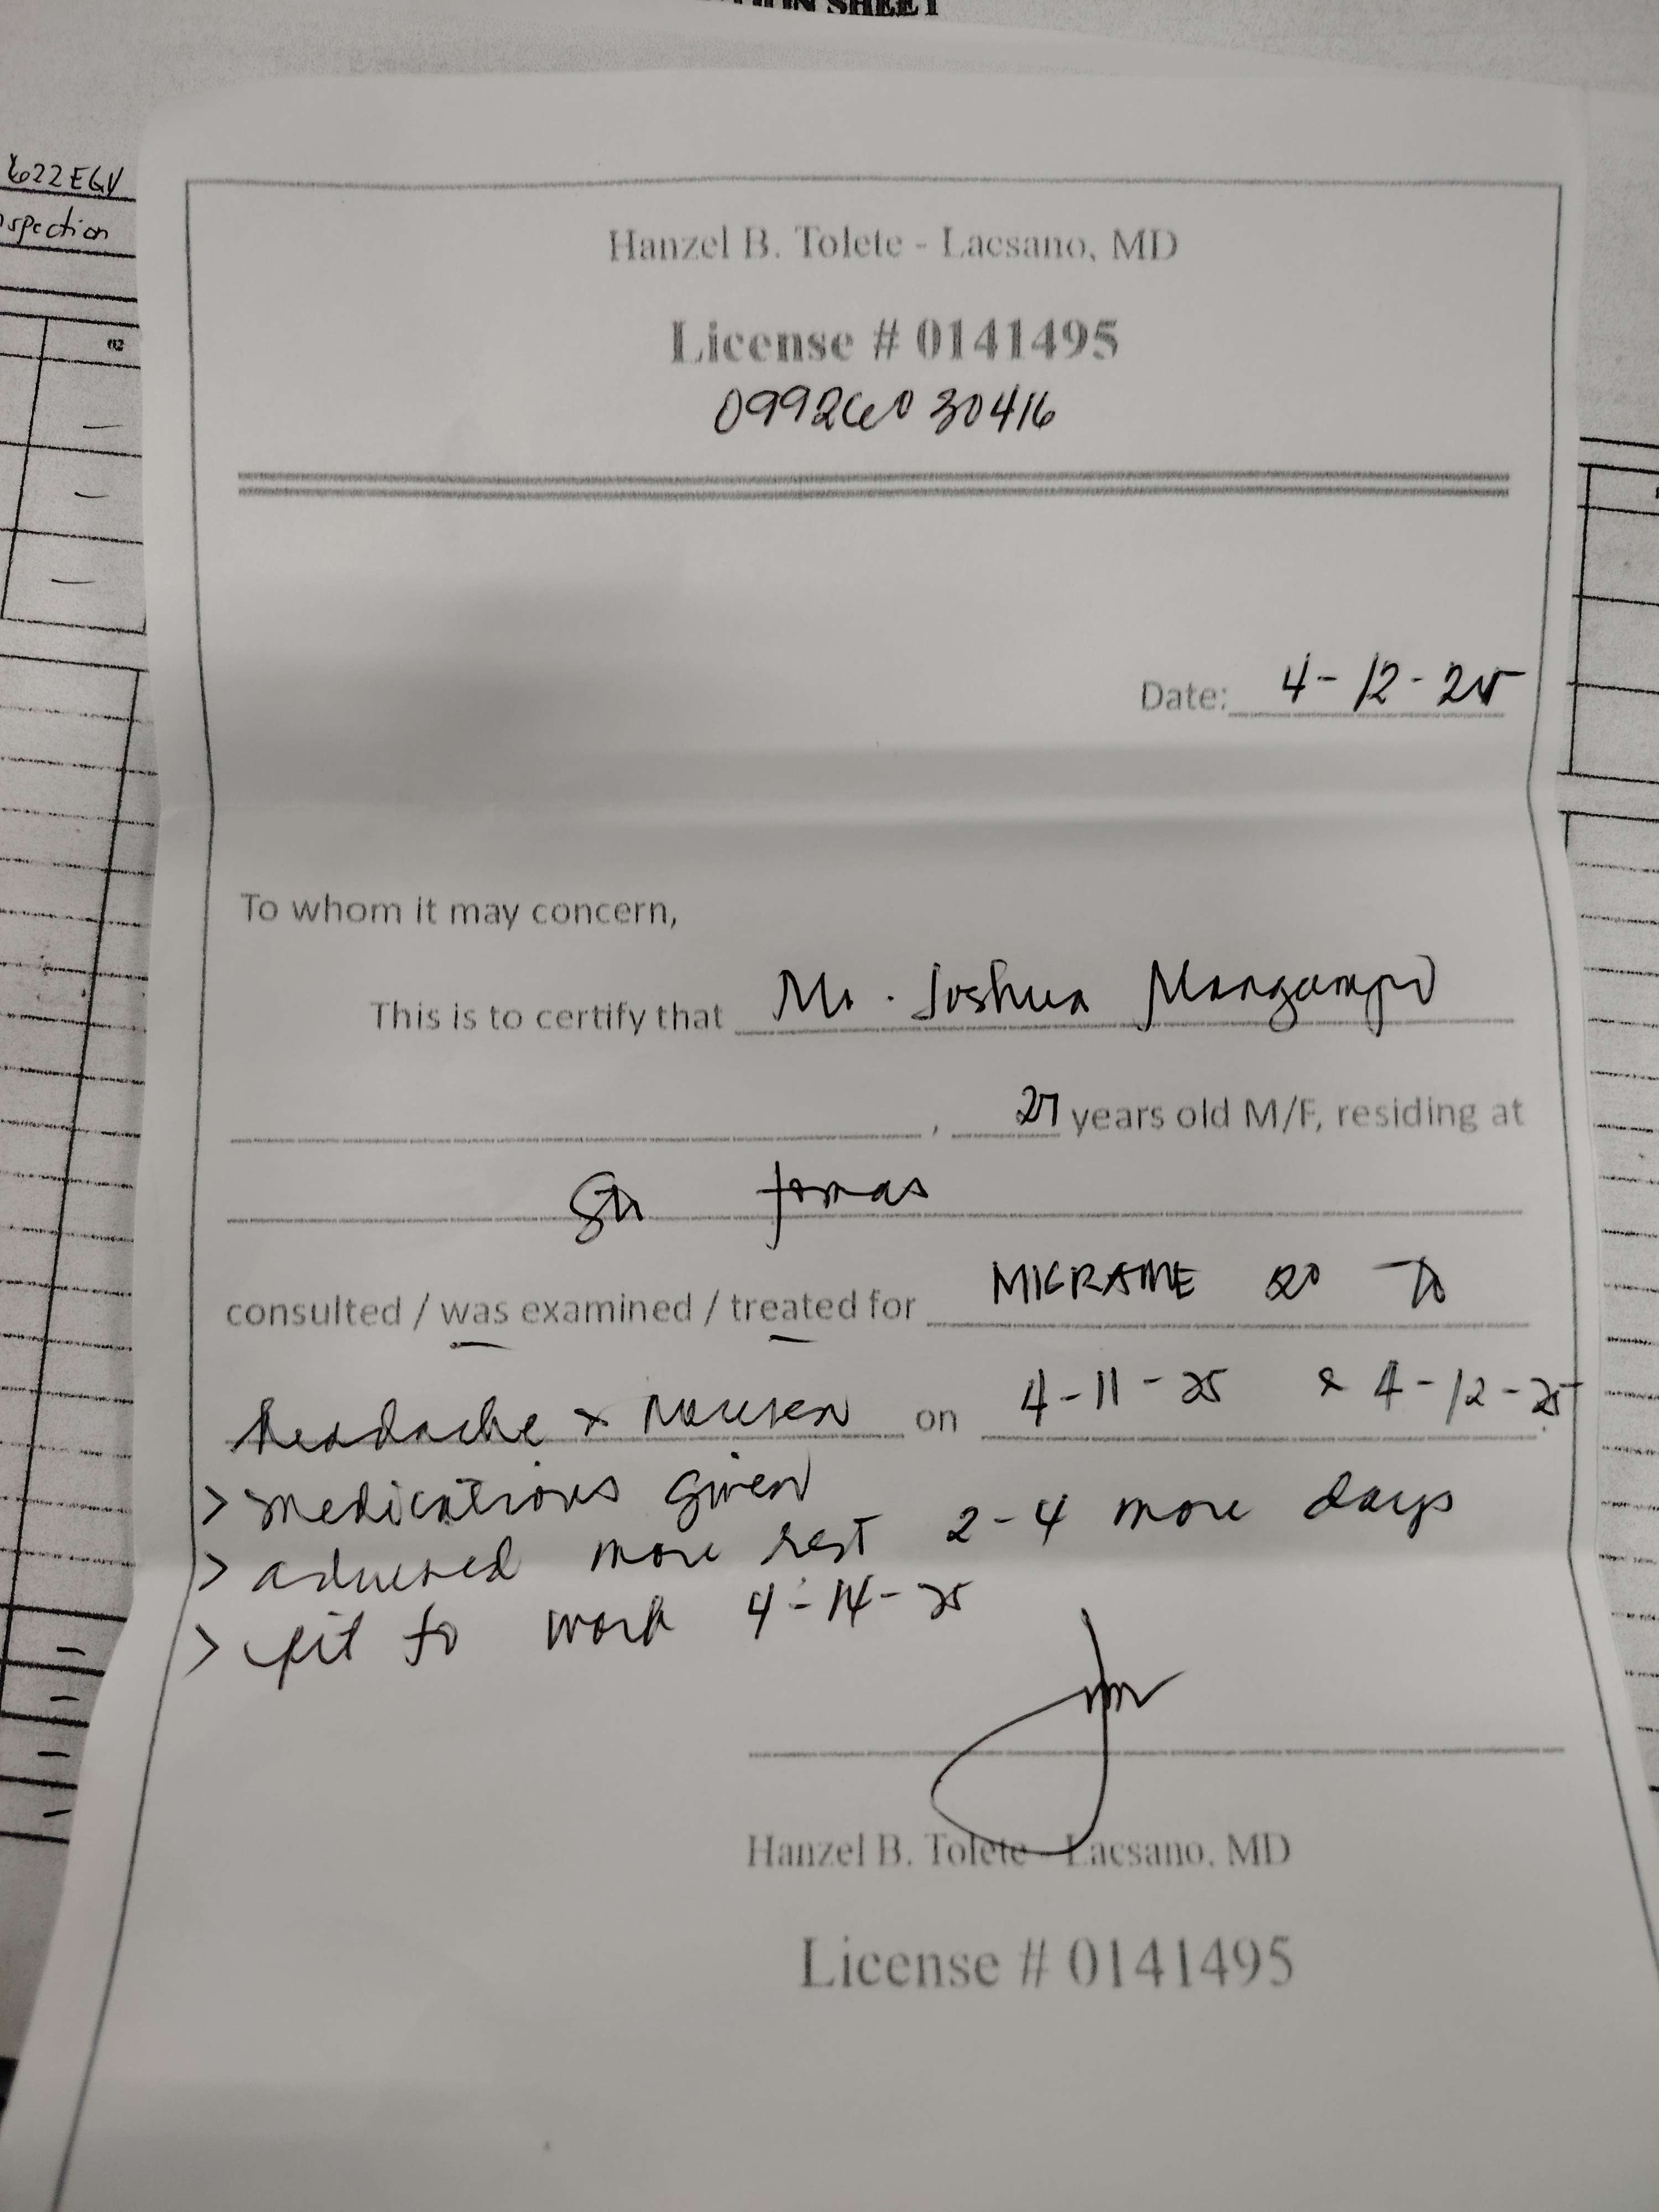 TION SHEET
622EGV
nspection
02
Hanzel B. Tolete - Lacsano, MD
License # 0141495
Date: 4-12-25
To whom it may concern,
This is to certify that Mr. Joshua Mangampo
, 27 years old M/F, residing at
Sto tomas
consulted / was examined / treated for MIGRAINE 2° to
headache + nausea on 4-11-25 & 4-12-25.
> medications given
> advised more rest 2-4 more days
> fit to work 4-14-25
Hanzel B. Tolete - Lacsano, MD
License # 0141495